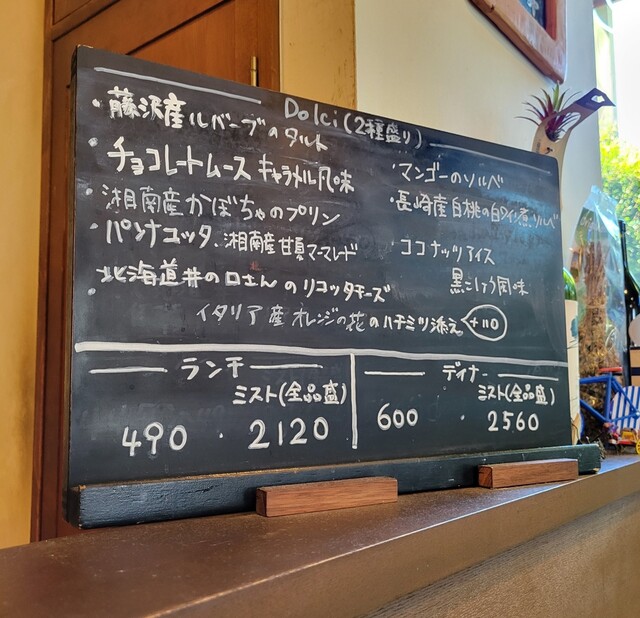 Dolci(2種盛り)
・藤沢産ルバーブのタルト
・チョコレートムース キャラメル風味
・湘南産かぼちゃのプリン
・パンナコッタ 湘南産甘夏マーマレード
・北海道井の口さんのリコッタチーズ
イタリア産オレンジの花のハチミツ添え +110
・マンゴーのソルベ
・長崎産白桃の白ワイン煮 ソルベ
・ココナッツアイス
黒こしょう風味
ランチ
ミスト(全品盛)
490 ・ 2120
ディナー
ミスト(全品盛)
600 ・ 2560